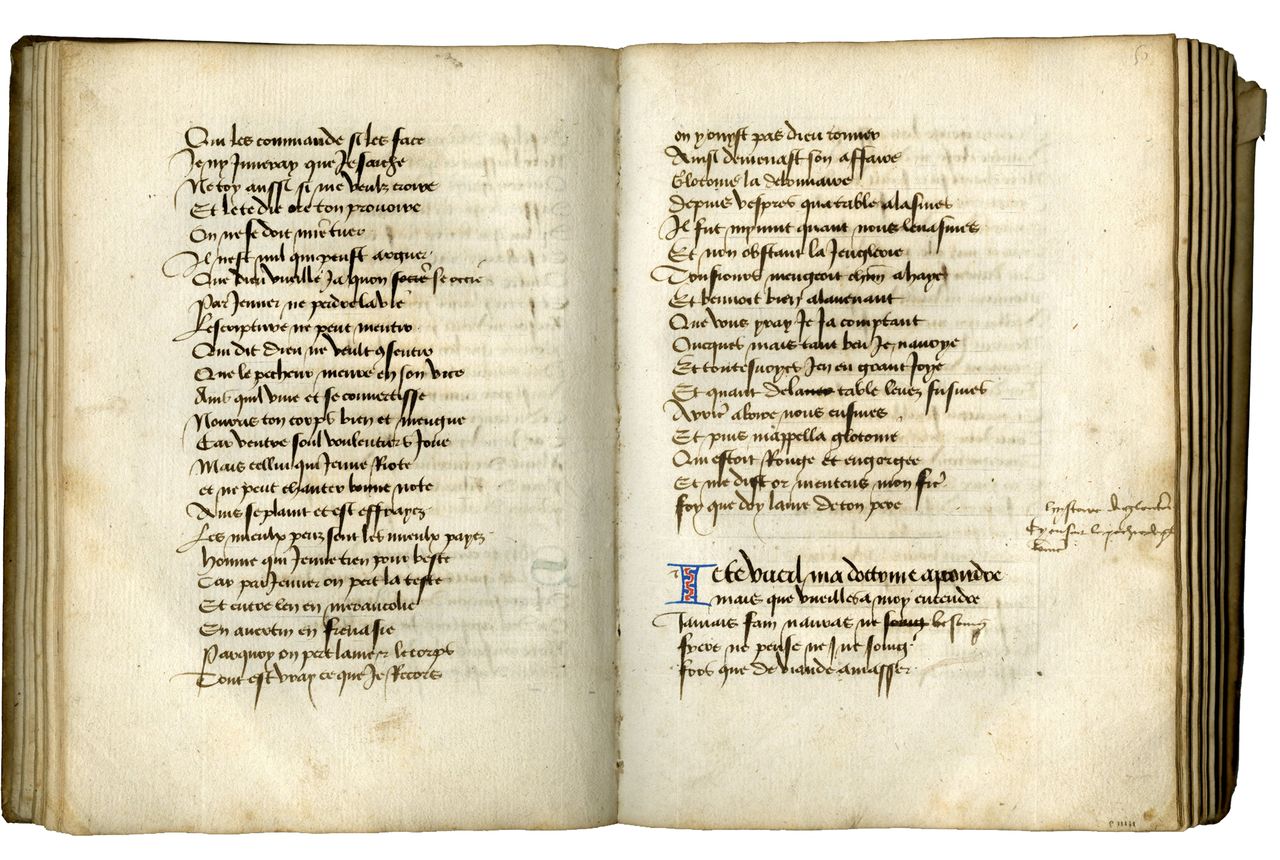 Qui les commande si les face
Je ny Juneray que Je sache
Ne toy aussi si me veulx croire
Et le te die ore ton provoire
On ne se doit mie tuer
Il nest nul qui peust arguer
Que dieu vueille Ja quon se occie
Par Jeuner ne perdre la vie
Lescripture ne peut mentir
Qui dit dieu ne veult 9sentir
Que le pecheur meure en son vice
Ains quil vive et se convertisse
Nourris ton corps bien et mengue
Car ventre soul voulentiers Joue
Mais cellui qui Jeune Riote
et ne peut chanter bonne note
Ains se plaint et est effrayez
Les mieulx peuz sont les mieulx payez
Homme qui Jeune tien pour beste
Car par Jeuner on pert la teste
Et entre len en merancolie
En avertin en frenasie
Par quoy on pert lame & le corps
Tout est vray ce que Je Recors
on y ouyst pas dieu tonner
Ainsi demenast son affaire
Glotonie la debonnaire
depuis vespres qua table alasmes
Il fut mynuit quant nous levasmes
Et non obstant la Jenglerie
Tousiours mengeoit a haye
Et bevuoit bien alavenant
Que vous yray Je Ja comptant
Oncques mais tant beu Je navoye
Et toutesvoyes Jen eu grant Joye
Et quant de la table levez fusmes
Avis alors nous eusmes
Et puis mappella glotonie
Qui estoit Rouge et engorgee
Et me dist or mentens mon filz
foy que doy lame de ton pere
hystoire de glouton
Je te vueil ma doctrine aprendre
mais que vueilles a moy entendre
Jamais fain nauras ne besoing
frere ne pense ne ne soing
fors que de viande amasser